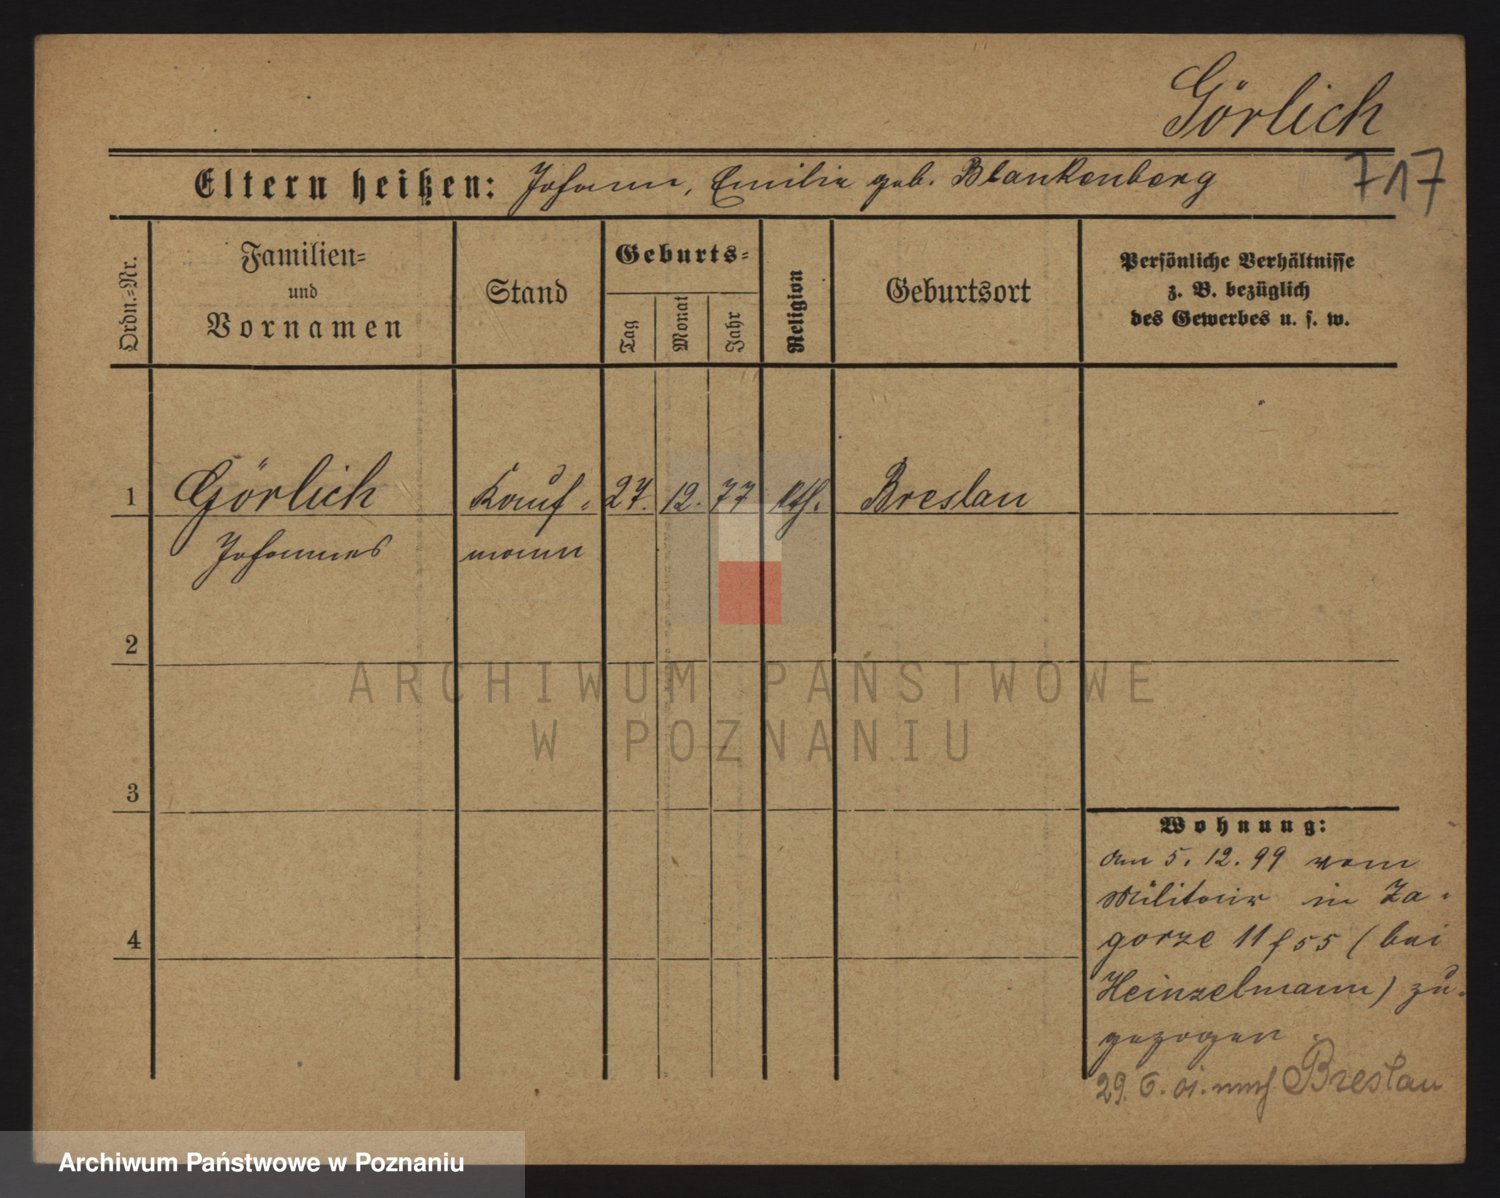 Görlich
717
Eltern heißen: Johann, Emilie geb. Blankenberg
Ordn.-Nr.
Familien-
und
Vornamen
Stand
Geburts-
Tag
Monat
Jahr
Religion
Geburtsort
Persönliche Verhältnisse
z. B. bezüglich
des Gewerbes u. s. w.
1 Görlich Kauf- 27. 12. 77 kth. Breslau
Johannes mann
2
3
4
Wohnung:
am 5. 12. 99 vom
Militair in Za-
gorze 11 f 55 (bei
Heinzelmann) zu-
gezogen
29. 6. 01. nach Breslau
ARCHIWUM PAŃSTWOWE
W POZNANIU
Archiwum Państwowe w Poznaniu